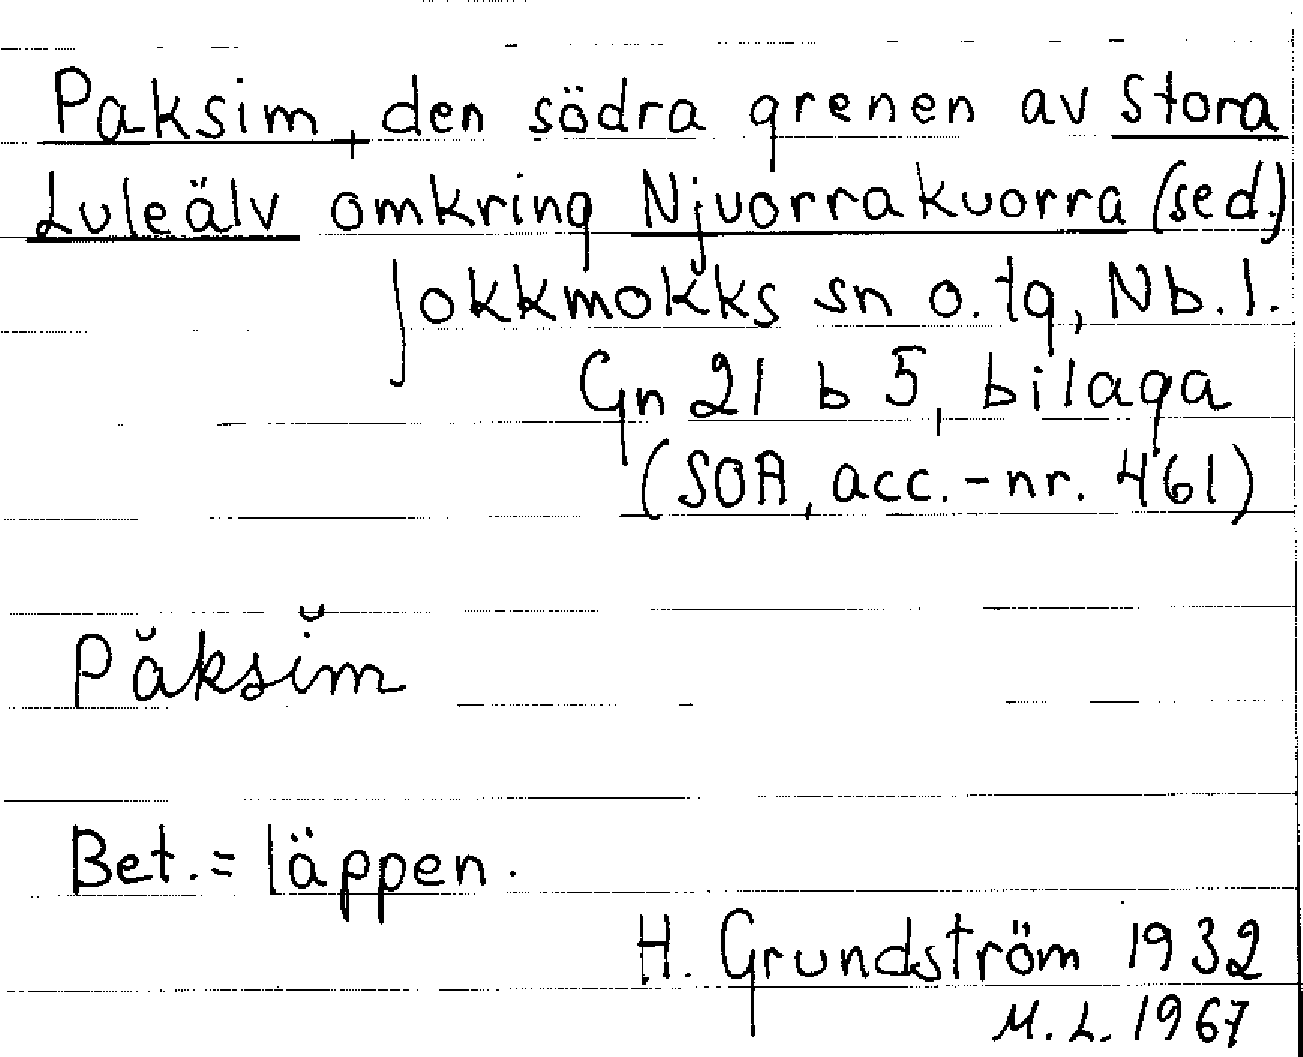 Paksim, den södra grenen av Stora
Luleälv omkring Njuorrakuorra (sed.)
Jokkmokks sn o. tg, Nb. l.
Gn 21 b 5, bilaga
(SOA, acc.-nr. 461)
Păksĭm
Bet. = läppen.
H. Grundström 1932
M. L. 1967